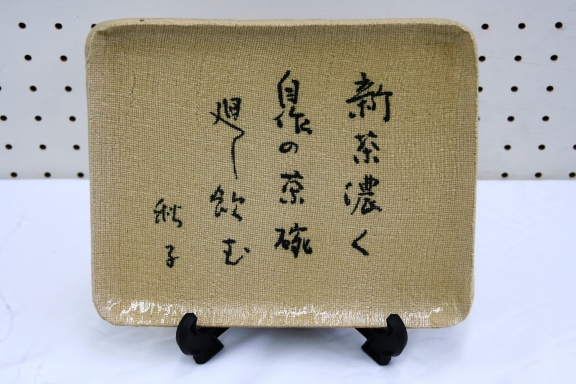 新茶濃く
自作の茶碗
廻し飲む
秋子